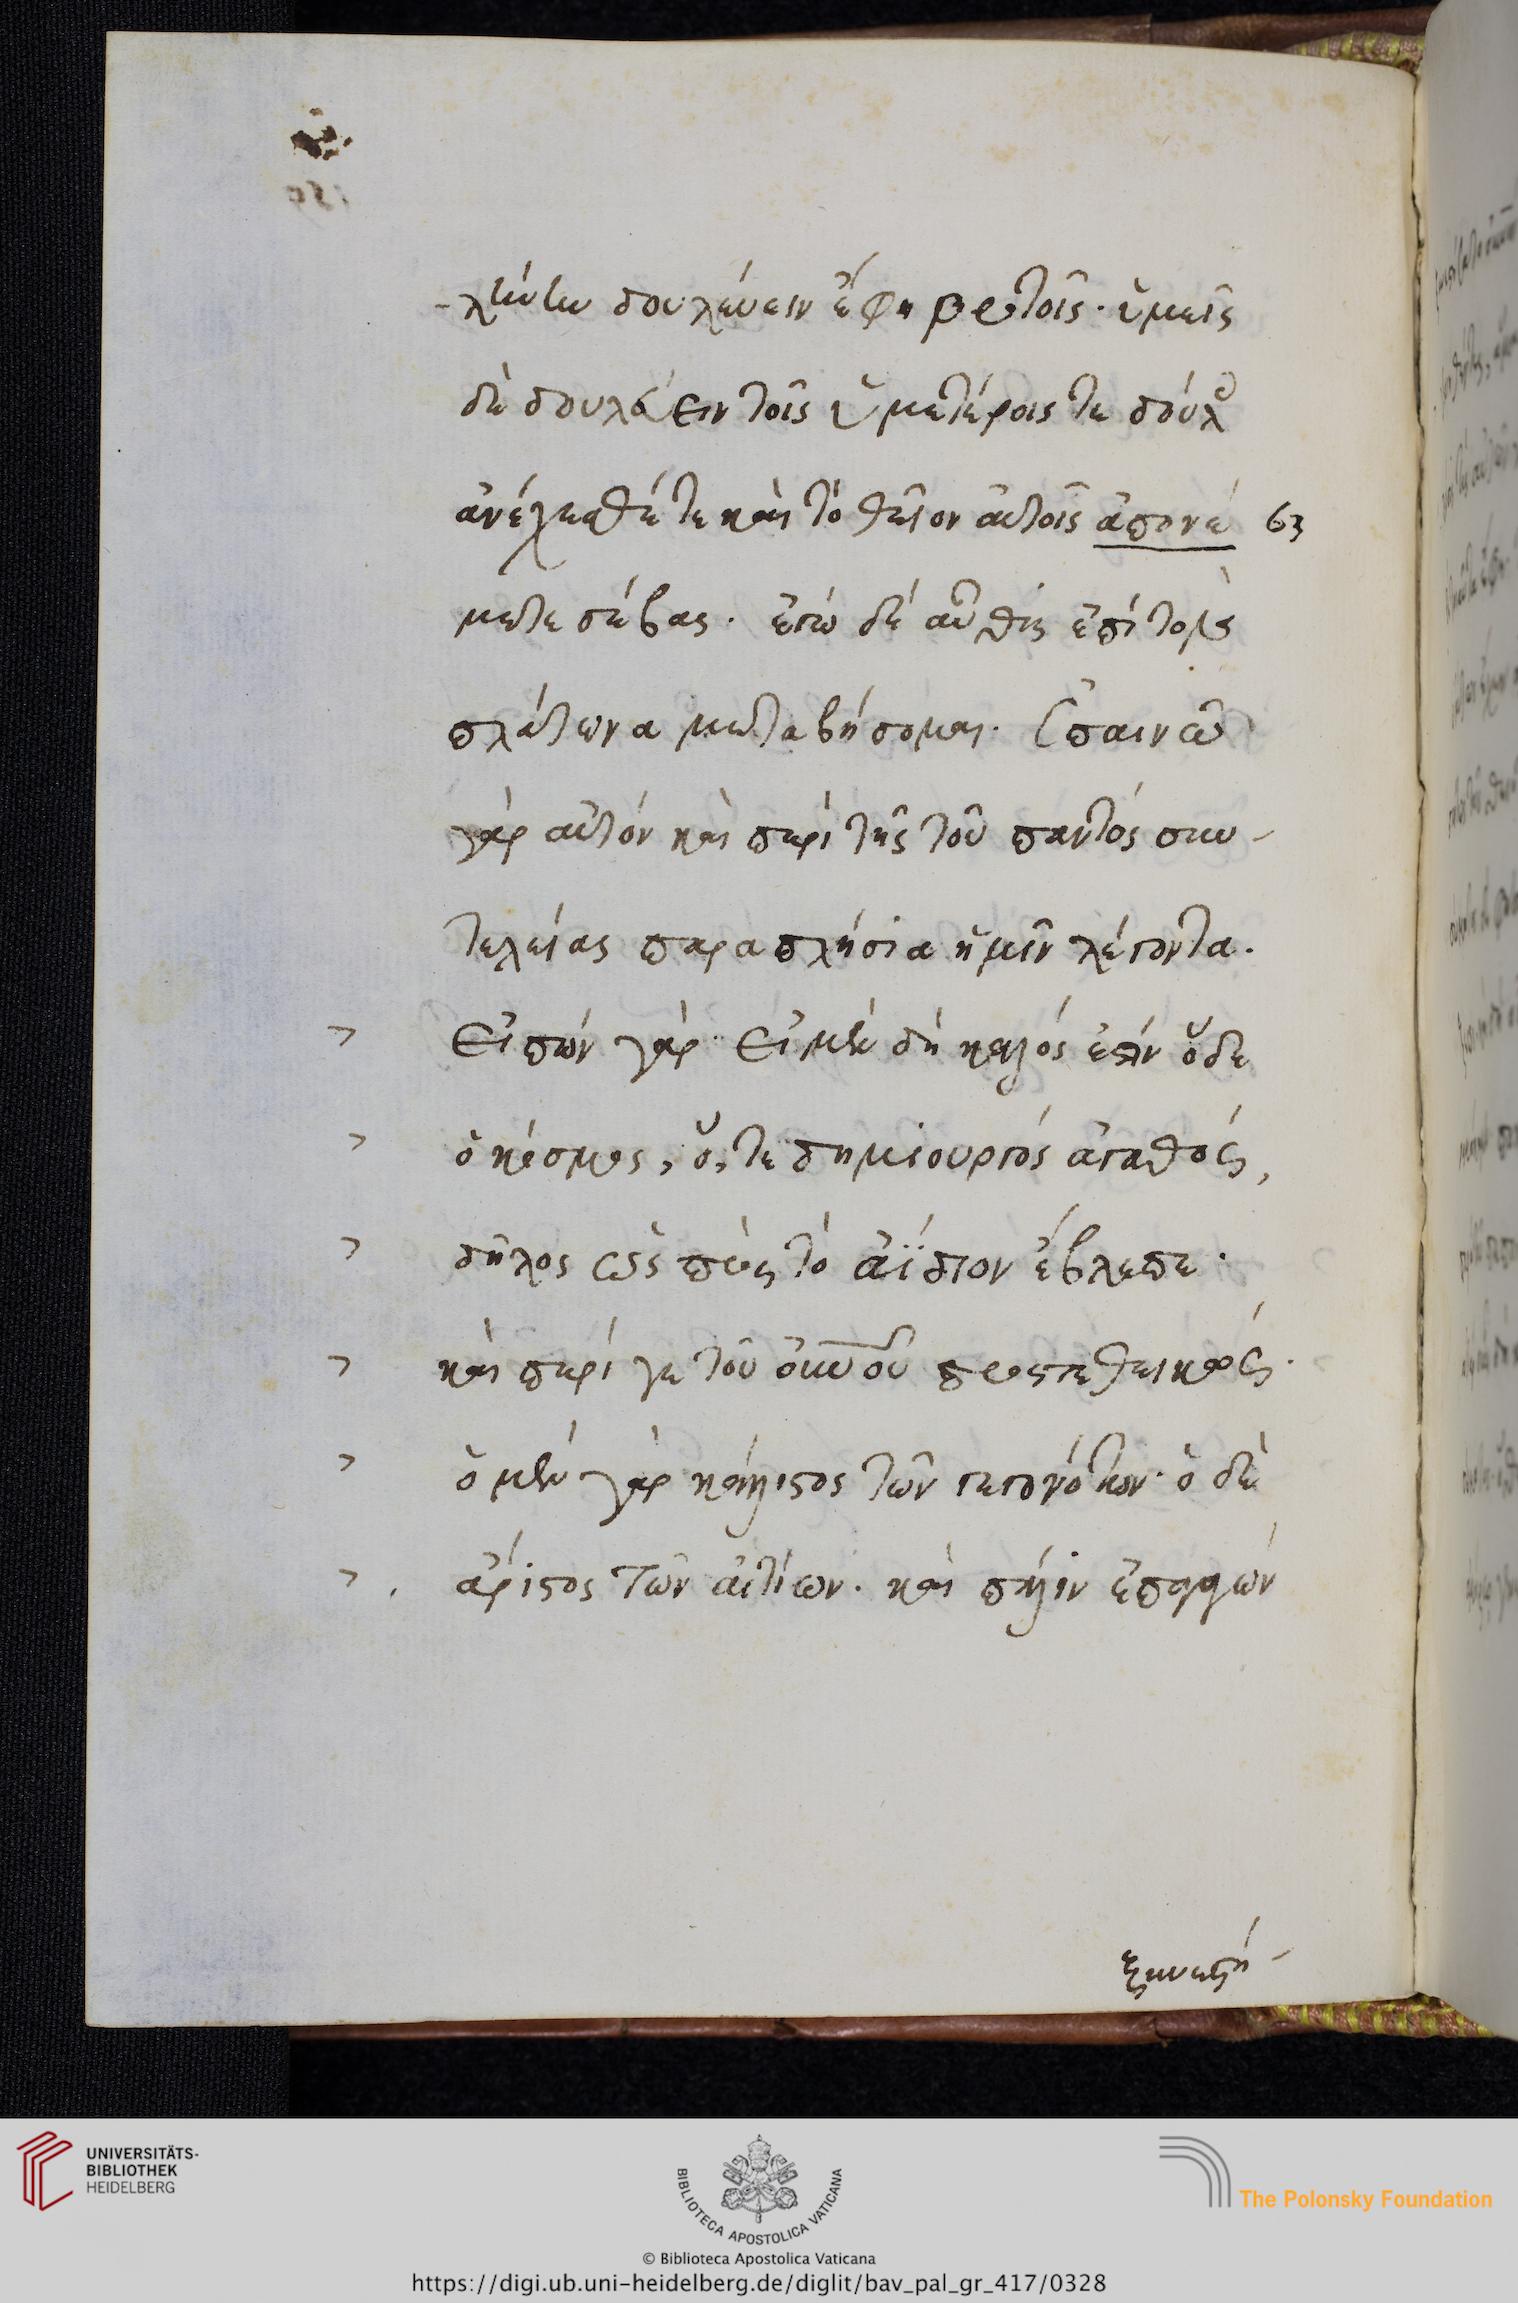 -λην την δουλεύειν ἔφη βροτοῖς· ὑμεῖς
δὲ δουλεύειν τοῖς ὑμετέροις τε δούλοις
ἀνέχεσθέ τε καὶ τὸ θεῖον αὐτοῖς ἀπονέ
63
μετε σέβας. ἐγὼ δὲ αὖθις ἐπὶ τὸν
πλάτωνα μεταβήσομαι. ἐπαινῶ
γὰρ αὐτὸν καὶ περὶ τῆς τοῦ παντὸς συν-
τελείας παραπλήσια ἡμῖν λέγοντα.
εἰπὼν γὰρ· εἰ μὲν δὴ καλός ἐστιν ὅδε
ὁ κόσμος, ὅ, τε δημιουργὸς ἀγαθός,
δῆλος ὡς πρὸς τὸ ἀΐδιον ἔβλεπε·
καὶ περί γε τοῦ σκηνοῦ προστεθεικώς·
ὁ μὲν γὰρ κάλλιστος τῶν γεγονότων· ὁ δὲ
ἄριστος τῶν αἰτίων. καὶ πάλιν ἐπαγαγών
UNIVERSITÄTS-
BIBLIOTHEK
HEIDELBERG
BIBLIOTECA APOSTOLICA VATICANA
© Biblioteca Apostolica Vaticana
The Polonsky Foundation
https://digi.ub.uni-heidelberg.de/diglit/bav_pal_gr_417/0328